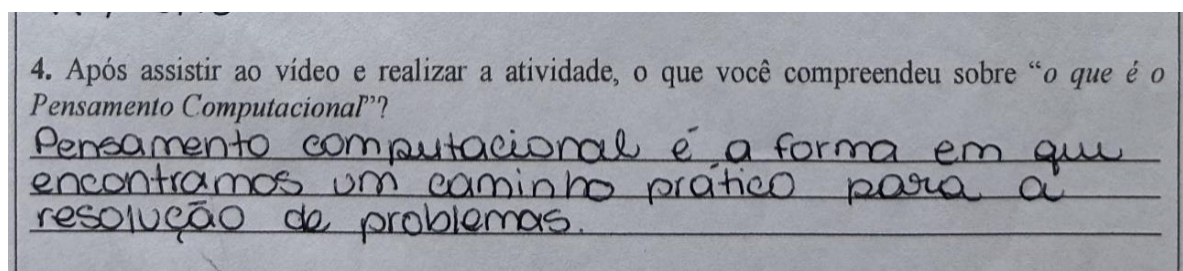 4. Após assistir ao vídeo e realizar a atividade, o que você compreendeu sobre “o que é o
Pensamento Computacional”?
Pensamento computacional é a forma em que
encontramos um caminho prático para a
resolução de problemas.